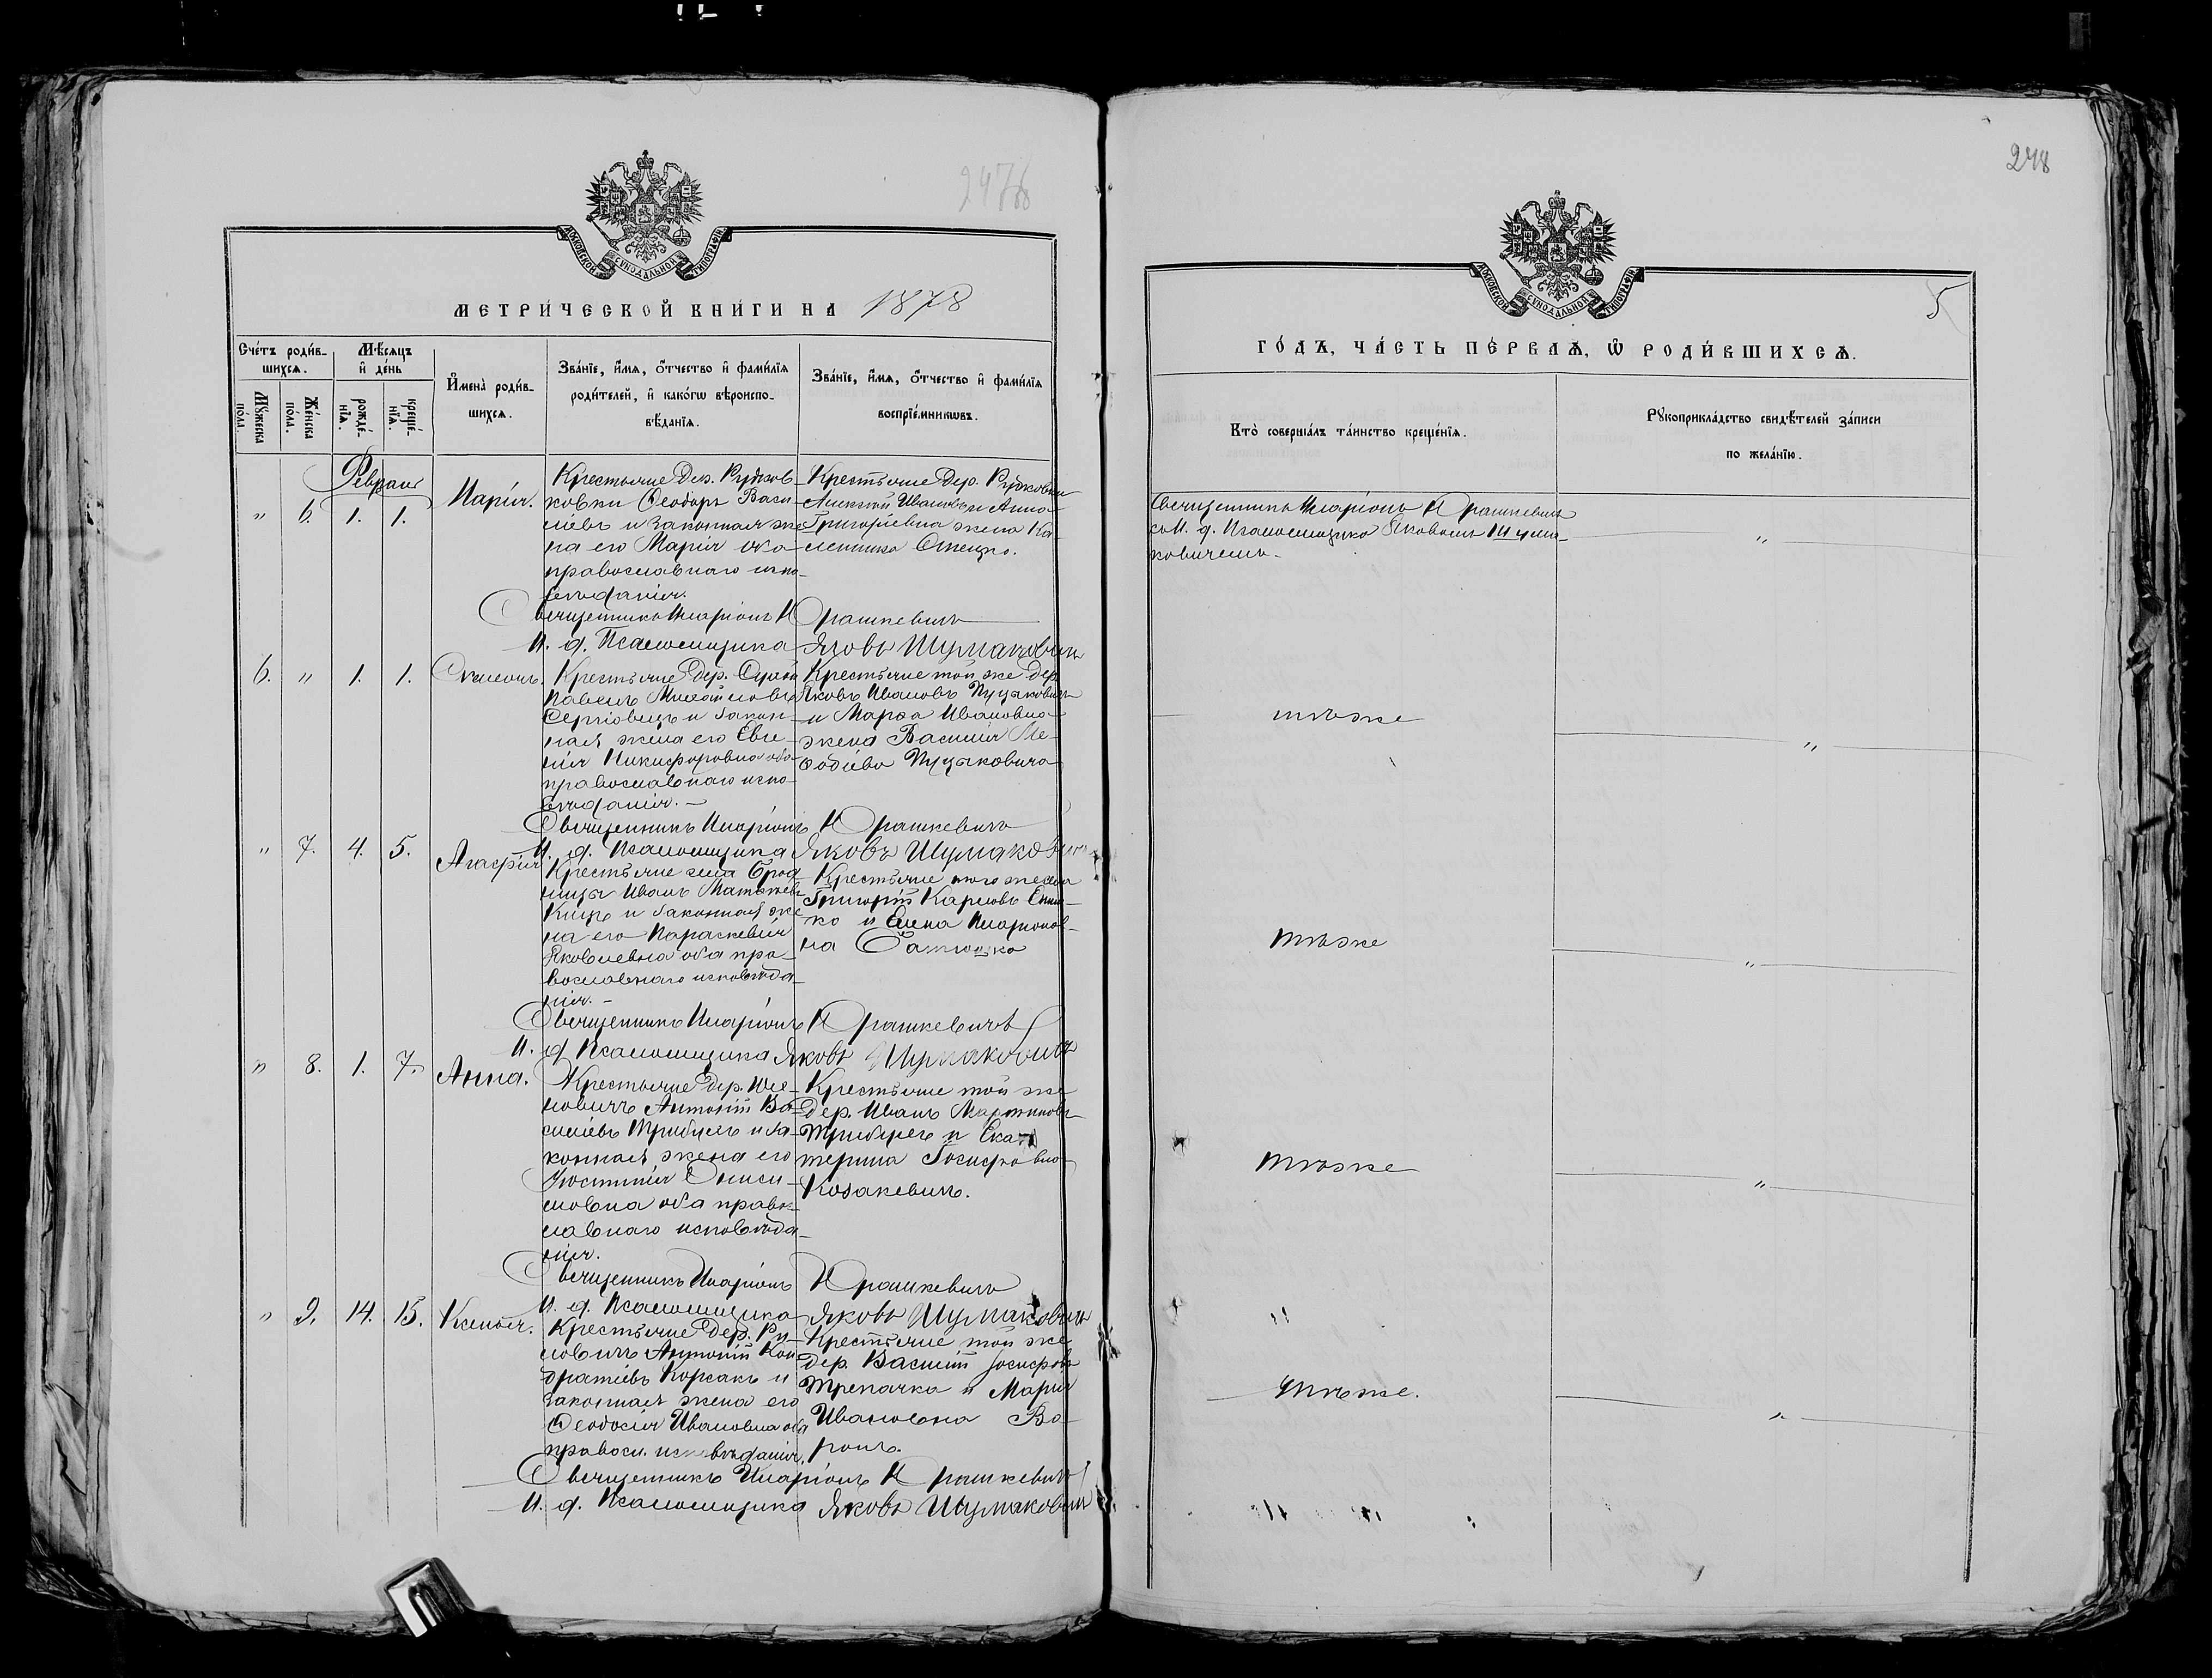 2476
МОСКОВСКОЙ СѴНОДАЛЬНОЙ ТИПОГРАФІИ.
МЕТРИ́ЧЕСКОЙ КНИ́ГИ НА 1878
Сче́тъ роди́в-
шихся.
Мѣ́сяцъ
и҆ де́нь
Мꙋ́жеска по́ла.
Же́нска по́ла.
рожде́-
нїѧ.
креще́-
нїѧ.
И҆мена̀ роди́в-
шихсѧ.
Зва́нїе, и҆́мѧ, ѻ҆́тчество и҆ фами́лїѧ
роди́телей, и҆ како́гѡ вѣроиспо-
вѣ́данїѧ.
Зва́нїе, и҆́мѧ, ѻ҆́тчество и҆ фами́лїѧ
воспрїе́мникѡвъ.
Февраль
" 6. 1. 1.
Марія.
Крестьяне Дер.
ковки Ѳеодоръ Васи-
ліевъ и законная же-
на его Марія оба
православнаго испо-
вѣданія.
Крестьяне Дер. Рудковки
Алексій Ивановъ и Анна
Григоріевна жена Ка-
леника Стецко.
Священникъ Иларіонъ Юрашкевичъ
И. д. Псаломщика Яковъ Шумаковичъ
6. " 1. 1.
Симеонъ.
Крестьяне Дер.
Павелъ Михайловъ
Сергіовецъ и закон-
ная жена его Евге-
нія Никифоровна оба
православнаго испо-
вѣданія.—
Крестьяне той же Дер.
Яковъ Ивановъ Пуцыковичъ
и Марѳа Ивановна
жена Василія Ме-
ѳодіева Пуцыковича
Священникъ Иларіонъ Юрашкевичъ
И. д. Псаломщика Яковъ Шумаковичъ
" 7. 4. 5.
Агафія
Крестьяне села Брод-
ницы Иванъ Матѳеевъ
Куцъ и законная же-
на его Параскевія
Яковлевна оба пра-
вославнаго исповѣда-
нія.—
Крестьяне того же села
Григорій Карповъ
ко и Елена Иларіонов-
на
Священникъ Иларіонъ Юрашкевичъ
И. д. Псаломщика Яковъ Шумаковичъ
" 8. 1. 7.
Анна.
Крестьяне Дер.
новичъ Антоній Ва-
силіевъ Трибулъ и за-
конная жена его
Іустинія Ониси-
мовна оба правос-
лавнаго исповѣда-
нія.
Крестьяне той же
Дер. Иванъ Мартиновъ
и Ека-
терина Іосифовна
Козакевичъ.
Священникъ Иларіонъ Юрашкевичъ
И. д. Псаломщика Яковъ Шумаковичъ
" 9. 14. 15.
Ксенія.
Крестьяне Дер.
Антоній Кон-
дратіевъ Корсакъ и
законная жена его
Ѳеодосія Ивановна оба
правосл. исповѣданія.
Крестьяне той же
дер. Василій Іосифовъ
Трепачка и Марія
Ивановна Во-
ронъ.
Священникъ Иларіонъ Юрашкевичъ
И. д. Псаломщика Яковъ Шумаковичъ
248
МОСКОВСКОЙ СѴНОДАЛЬНОЙ ТИПОГРАФІИ.
5
ГО́ДЪ, ЧА́СТЬ ПЕ́РВАѦ, Ѡ҆ РОДИ́ВШИХСѦ.
Кто̀ соверша́лъ та́инство креще́нїѧ.
Рꙋкоприкла́дство свидѣ́телей за́писи
по жела́нїю.
Священникъ Иларіонъ Юрашкевичъ
съ И. д. Псаломщика Яковомъ Шума-
ковичемъ.
"
тѣже
"
Тѣже
"
Тѣже
"
Тѣже.
"